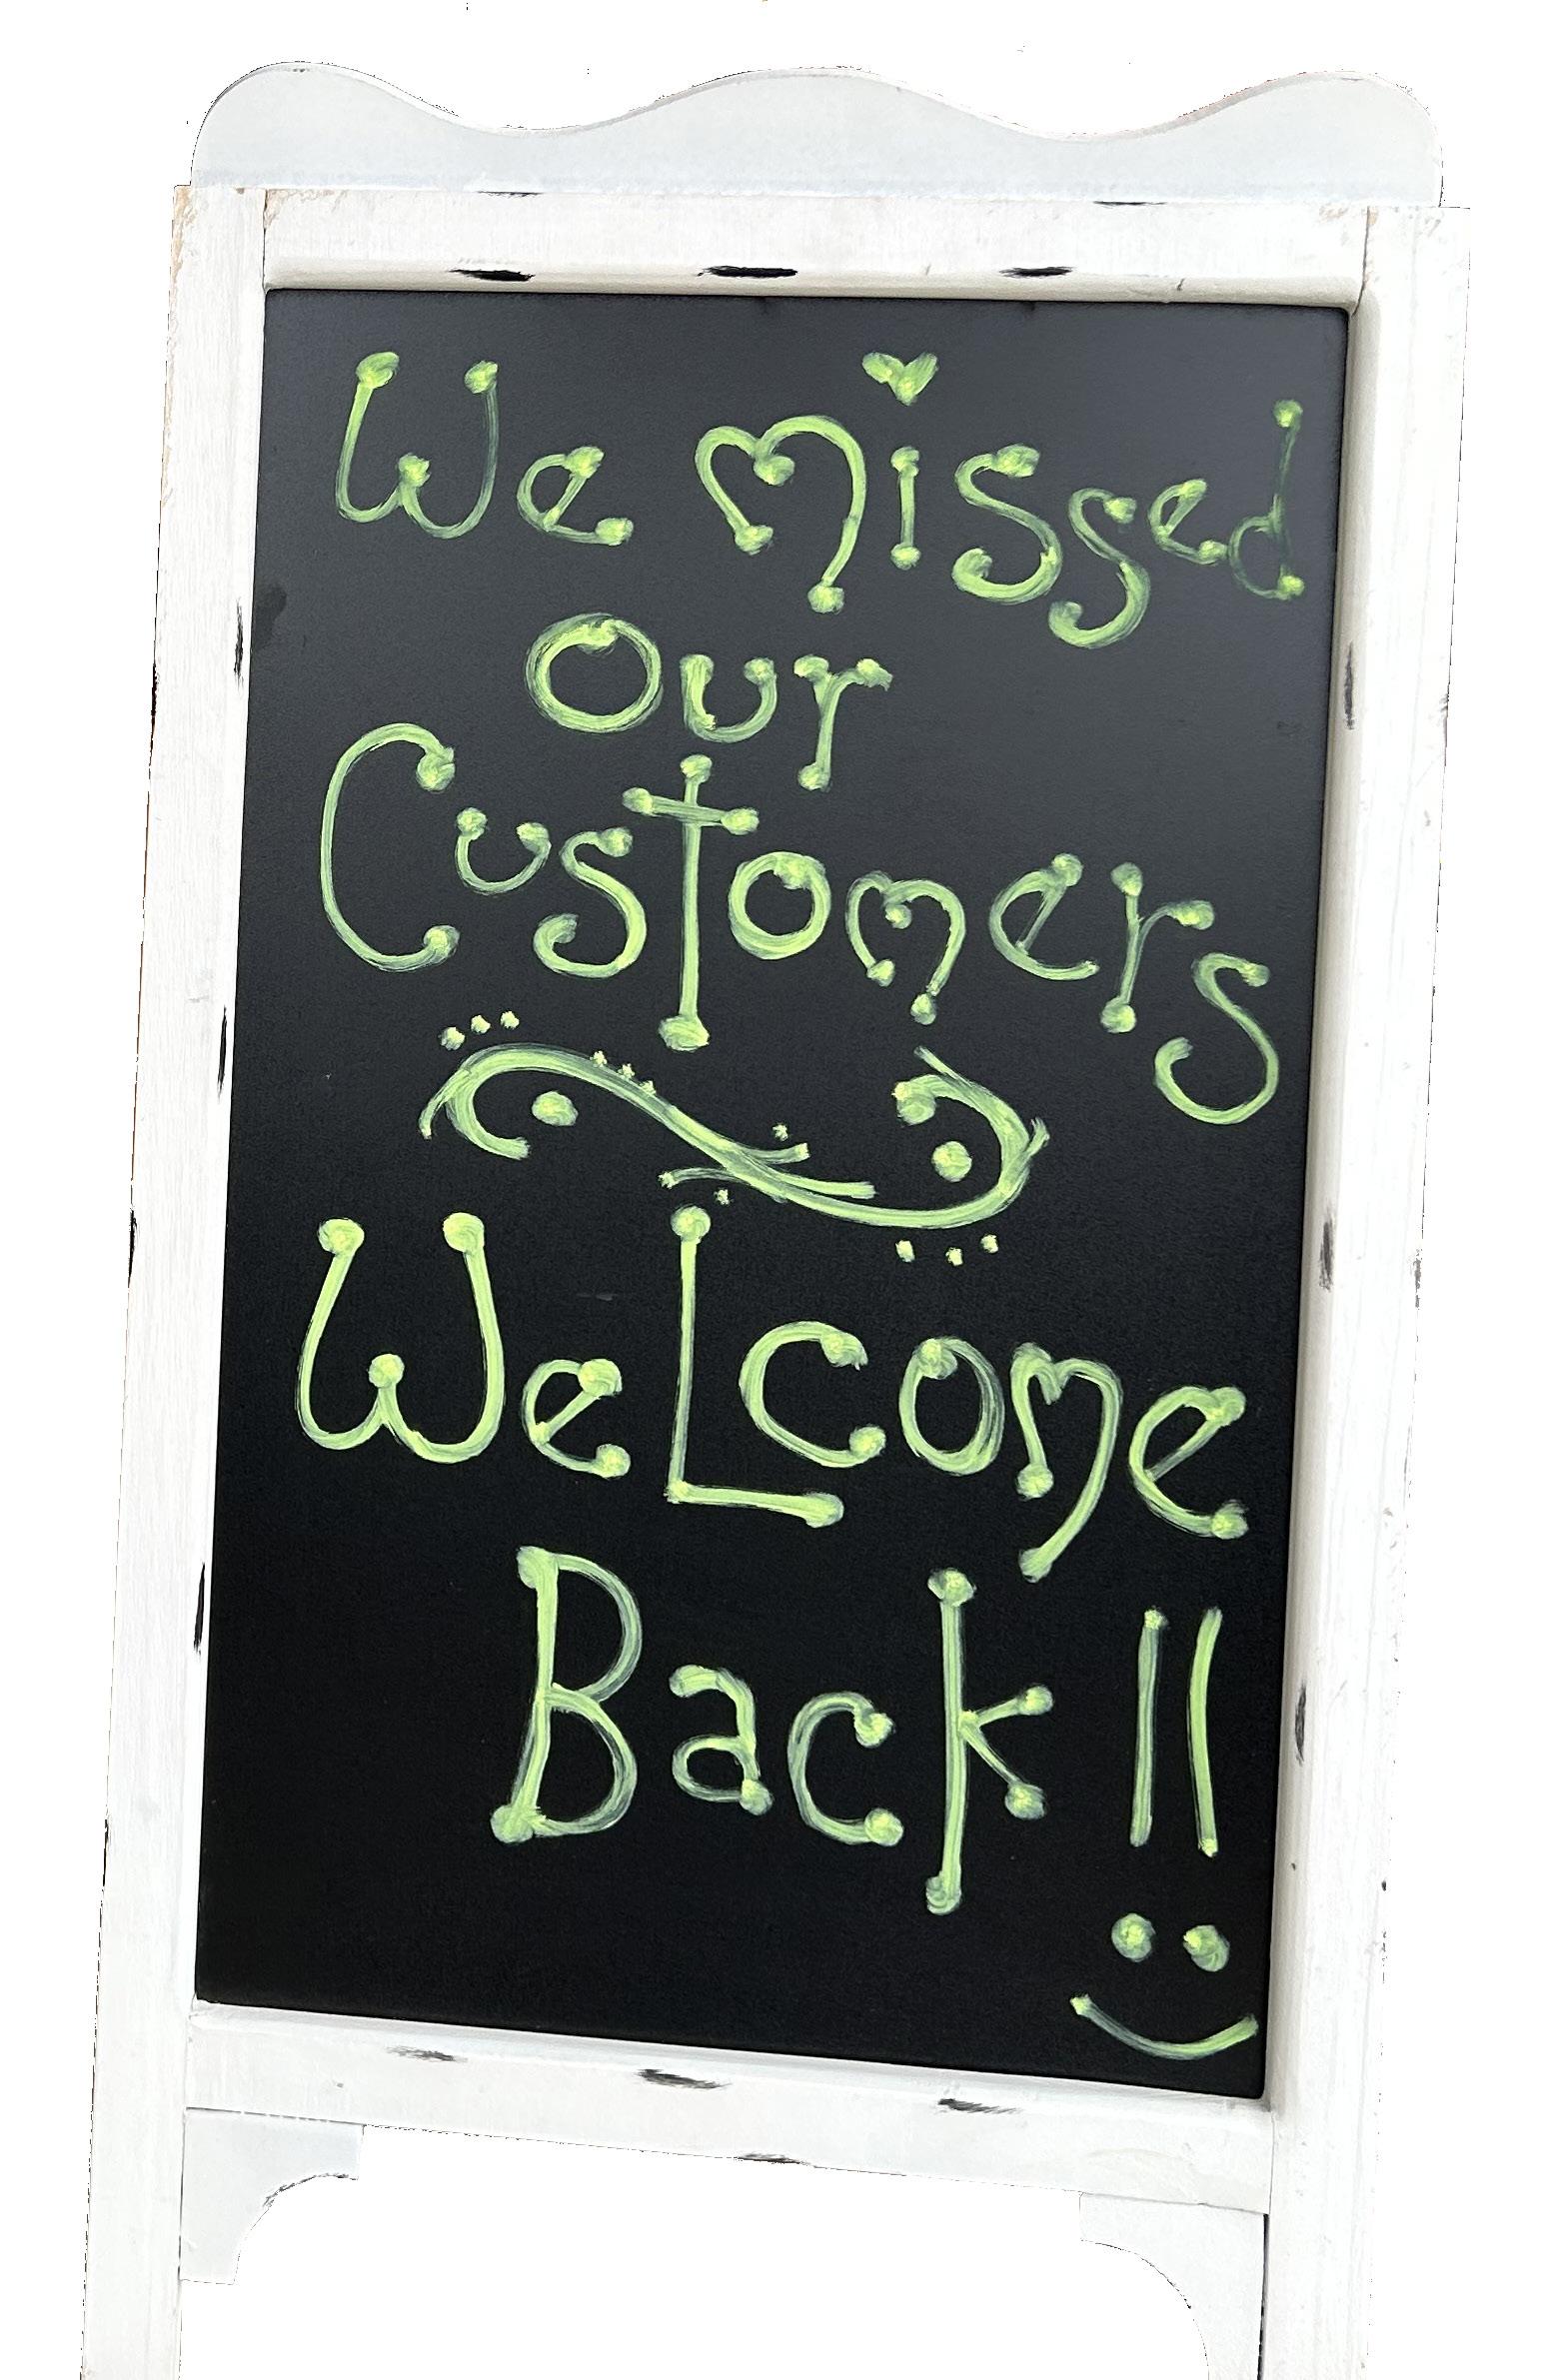 We missed
our
Customers
WeLcome
Back!!